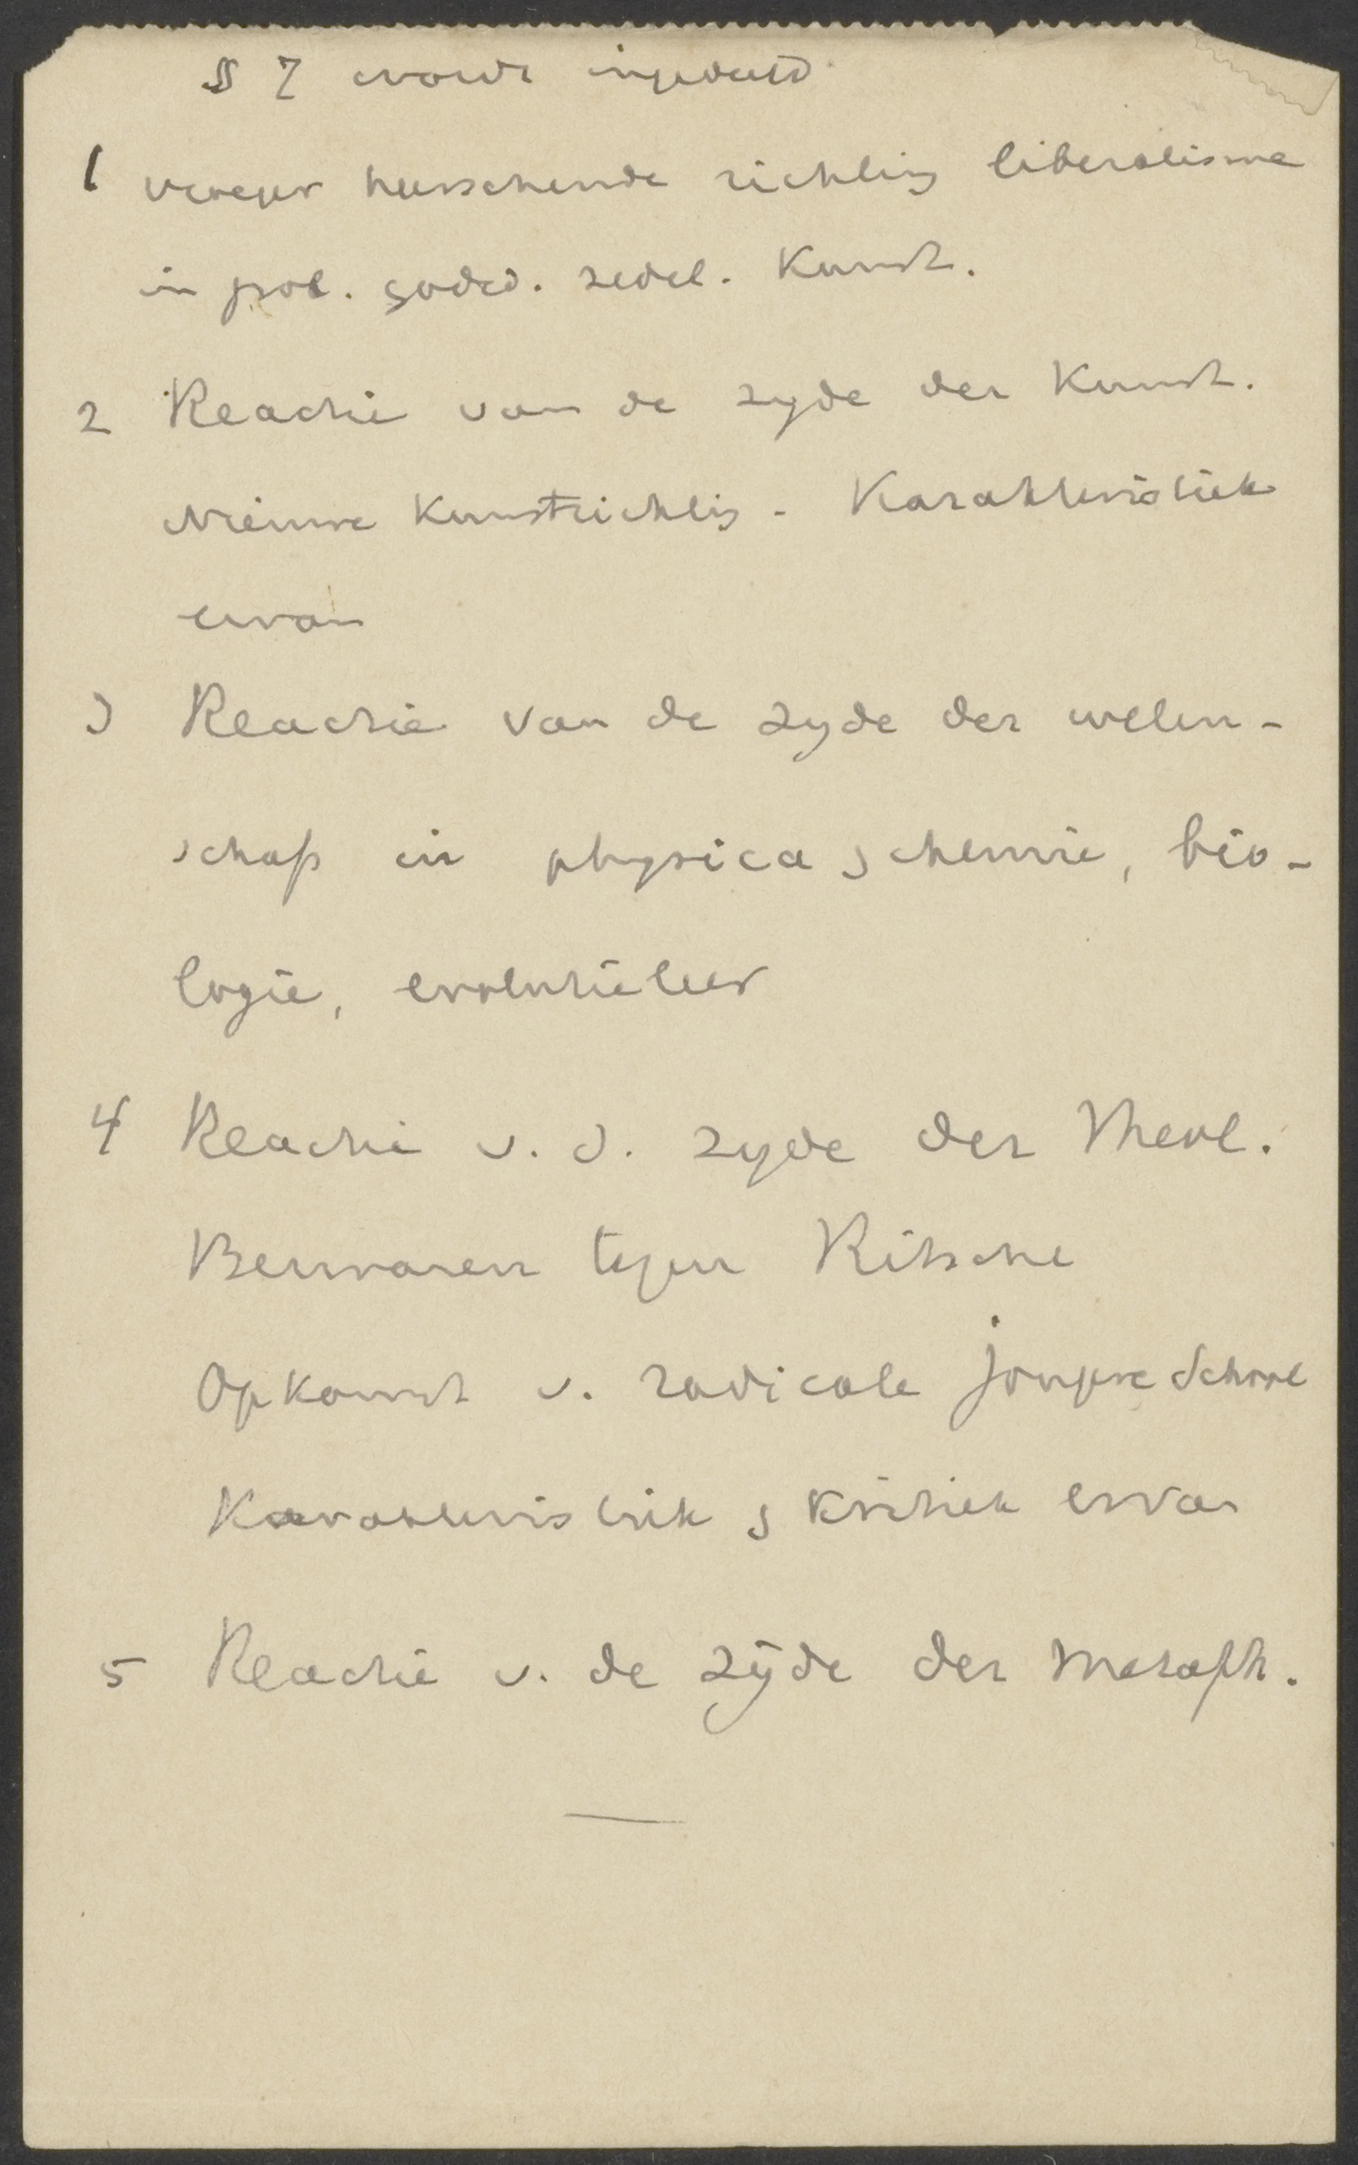 § 7 wordt ingedeeld
1 vroeger heerschende richting liberalisme
in pol. godsd. zedel. Kunst.
2 Reactie van de zyde der Kunst.
Nieuwe Kunstrichting - Karakteristiek
ervan
3 Reactie van de zyde der weten-
schap in physica, chemie, bio-
logie, evolutieleer
4 Reactie v. d. zyde der Theol.
Bezwaren tegen Ritschl
Opkomst v. radicale jongere School
Karakteristiek, Kritiek ervan
5 Reactie v. de zijde der metaph.